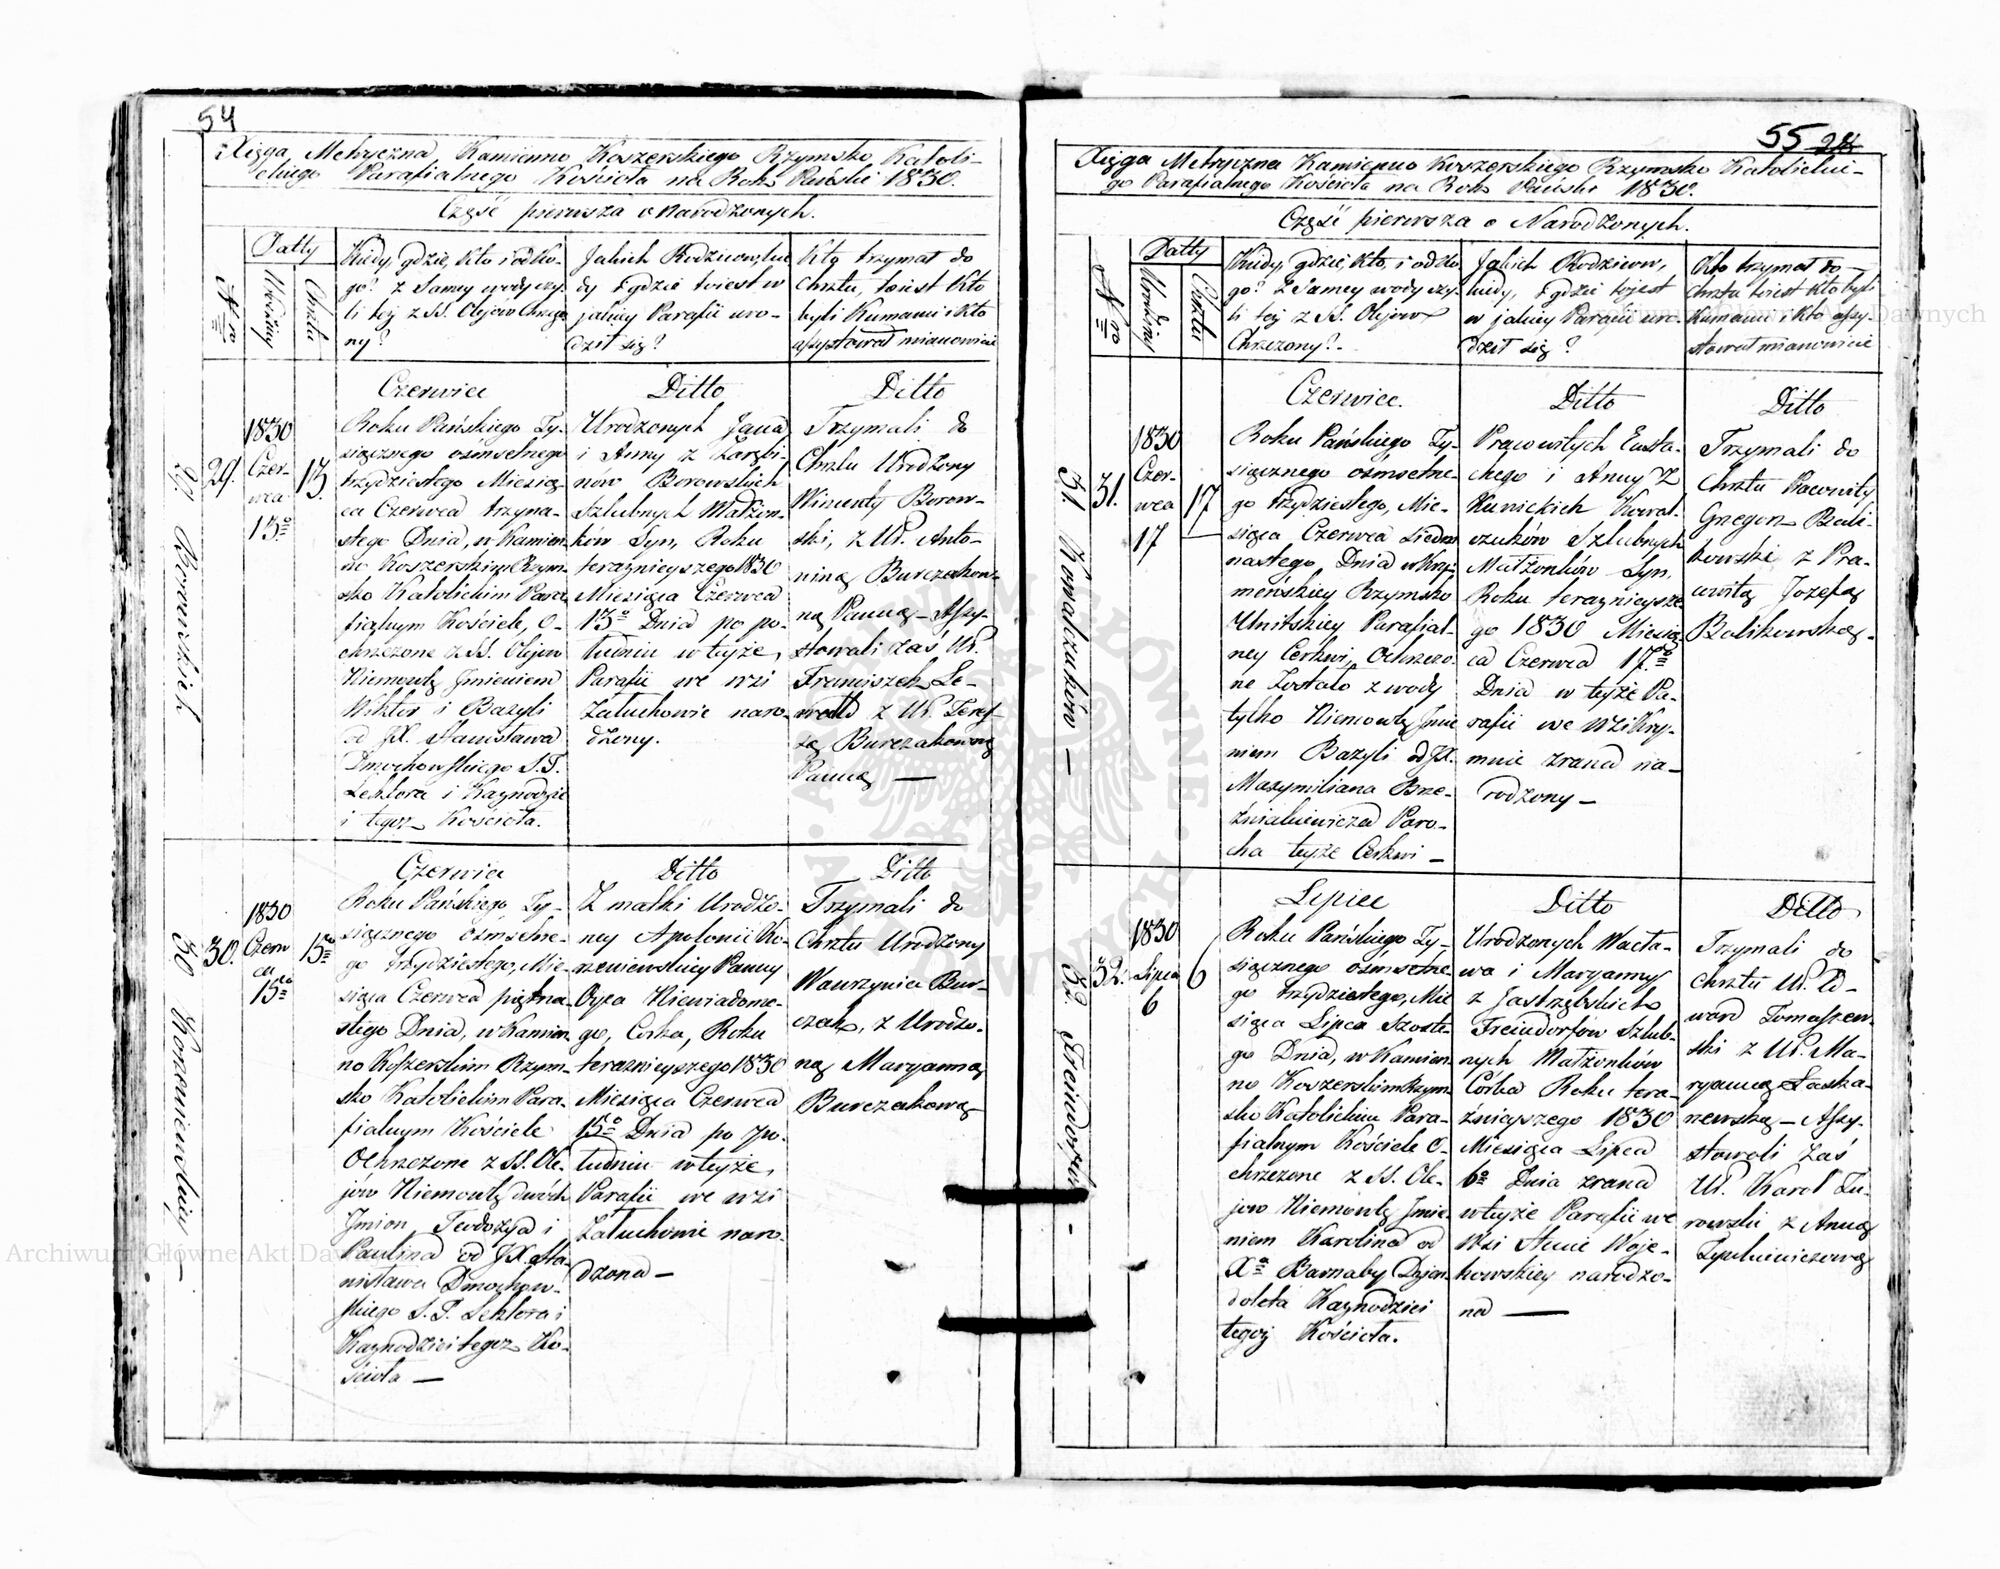 54
Xięga Metryczna Kamienno Koszerskiego Rzymsko Katoli-
ckiego Parafialnego Kościoła na Rok Pański 1830.
Część pierwsza o Narodzonych.
N<u>ro</u>
Datty
Urodziny
Chrztu
Kiedy, gdzie, Kto i od Ko-
go? z Samey wody czy-
li też z SS. Olejów Chrzczo
ny?
Jakich Rodziców, kie
dy i gdzie toiest w
jakiey Parafii uro-
dził się?
Kto trzymał do
Chrztu, toiest Kto
byli Kumami i Kto
assystował mianowicie
29. Borowskich
29.
1830
Czer-
wca
13<u>o</u>
13.
Czerwiec
Roku Pańskiego Ty-
siącznego ośmsetnego
trzydziestego Miesią-
ca Czerwca trzyna-
stego Dnia, w Kamien-
no Koszerskim Rzym-
sko Katolickim Para
fialnym Kościele, O-
chrzczone z SS. Olejow
Niemowlę Jmieniem
Wiktor i Bazyli
od JX. Stanisława
Dmochowskiego S.T.
Lektora i Kaznodzie
i tegoż Kościoła.
Ditto
Urodzonych Jana
i Anny z Zarębi-
nów Borowskich
Szlubnych Małżon-
ków Syn, Roku
terazniejszego 1830
Miesiąca Czerwca
13<u>o</u> Dnia po po-
łudniu w teyże
Parafii we wsi
Załuchowie naro-
dzony.
Ditto
Trzymali do
Chrztu Urodzony
Wincenty Borow-
ski, z UP. Anto-
niną Burczakow-
ną Panną – Assy-
stowali zaś UP.
Franciszek Le-
wald z UP. Teres-
są Burczakowną
Panną —
30 Korzeniewskiey —
30.
1830
Czerw
ca
15<u>o</u>
15<u>o</u>
Czerwiec
Roku Pańskiego, Ty-
siącznego ośmsetne-
go trzydziestego, Mie-
siąca Czerwca piętna-
stego Dnia, w Kamien-
no Koszerskim Rzym-
sko Katolickim Para-
fialnym Kościele
Ochrzczone z SS. Ole-
jów Niemowlę dwóch
Jmion, Teodozya i
Paulina od JX. Sta-
nisława Dmochow-
skiego S. T. Lektora i
Kaznodziei tegoż Ko-
ścioła —
Ditto
Z matki Urodzo-
ney Apolonii Ko-
rzeniewskiey Panny
Oyca Niewiadome-
go, Corka, Roku
teraznieyszego 1830
Miesiąca Czerwca
15<u>o</u> Dnia po po-
łudniu w teyże
Parafii we wsi
Załuchowie naro-
dzona —
Ditto
Trzymali do
Chrztu Urodzony
Wawrzyniec Bur-
czak, z Urodzo-
ną Maryanną
Burczakową
55 28
Xięga Metryczna Kamienno Koszerskiego Rzymsko Katolickie-
go Parafialnego Kościoła na Rok Pański 1830.
Część pierwsza o Narodzonych.
N<u>ro</u>
Datty
Urodziny
Chrztu
Kiedy, gdzie, Kto, i od Ko
go? Z Samey wody czy-
li też z SS. Olejow
Chrzczony?.
Jakich Rodziców,
kiedy, i gdzie tojest
w jakiey Parafii uro-
dził się?
Kto trzymał do-
Chrztu toiest Kto byli
Kumami i Kto assy-
stował mianowicie
31. Kowalczuków —
31.
1830
Czer-
wca
17
17
Czerwiec.
Roku Pańskiego Ty-
siącznego ośmsetne-
go trzydziestego, Mie-
siąca Czerwca siedm
nastego Dnia w Kry-
meńskiey Rzymsko
Unitskiey Parafial-
ney Cerkwi, Ochrzczo-
ne zostało z wody
tylko Niemowlę Jmie
niem Bazyli od JX.
Maxymiliana Brze-
źniakiewicza Paro-
cha teyże Cerkwi —
Ditto
Pracowitych Eusta-
chego i Anny Z
Kunickich Kowal-
czuków Szlubnych
Małżonków Syn,
Roku terazniejsze
go 1830 Miesią
ca Czerwca 17.<u>o</u>
Dnia w teyże Pa-
rafii we wsi Kry-
mnie zrana na-
rodzony —
Ditto
Trzymali do
Chrztu Pracowity
Gregorz Bali-
kowski z Pra-
cowitą Jozefą
Balikowską.
32 Freindorfów -
32.
1830
Lipca
6
6
Lipiec
Roku Pańskiego Ty-
siącznego ośmsetne
go trzydziestego, Mie
siąca Lipca szoste-
go Dnia, w Kamien-
no Koszerskim Rzym-
sko Katolickim Para-
fialnym Kościele O-
chrzczone z SS. Ole-
jow Niemowlę Jmie-
niem Karolina od
X<u>a</u> Barnaby Dyjon-
doleta Kaznodziei
tegoż Kościoła.
Ditto
Urodzonych Wacła-
wa i Maryanny
z Jastrzębskich
Freindorfów Szlub-
nych Małżonków
Corka Roku tera-
źnieyszego 1830
Miesiąca Lipca
6<u>o</u> Dnia zrana
w teyże Parafii we
Wsi Hucie Woje-
kowskiey narodzo-
na —
Ditto
Trzymali do
chrztu UP. Ed-
ward Tomaszew-
ski z UP. Ma-
ryanną Laska-
newską – Assy-
stowali zaś
UP. Karol Tu-
rowski z Anną
Archiwum Główne Akt Dawnych